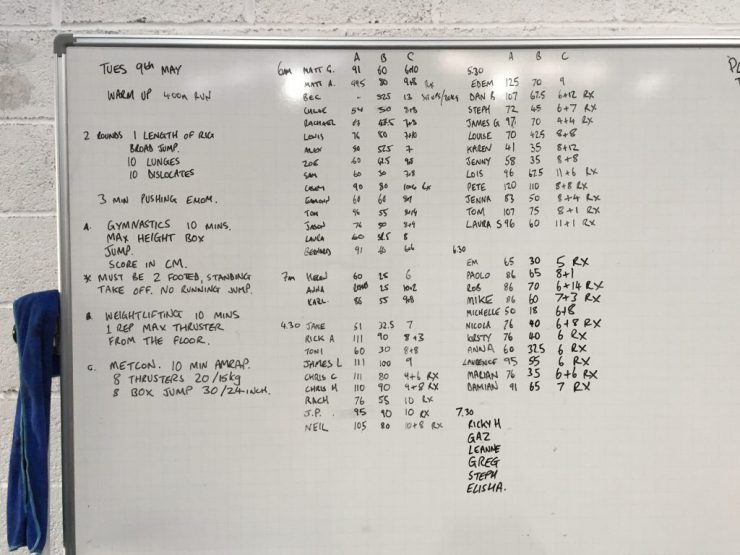 TUES 9th MAY
WARM UP 400m RUN
2 ROUNDS 1 LENGTH OF RIG
BROAD JUMP.
10 LUNGES
10 DISLOCATES
3 MIN PUSHING EMOM.
A. GYMNASTICS 10 MINS.
MAX HEIGHT BOX
JUMP.
SCORE IN CM.
* MUST BE 2 FOOTED, STANDING
TAKE OFF. NO RUNNING JUMP.
B. WEIGHTLIFTING 10 MINS
1 REP MAX THRUSTER
FROM THE FLOOR.
C. METCON. 10 MIN AMRAP.
8 THRUSTERS 20/15kg
8 BOX JUMP 30/24 INCH.
A B C
6am MATT G. 91 60
MATT A. 80
BEC - 32.5 13
CHLOE 50
RACHAEL
LEWIS 76 80
ALEX 52.5 7
ZOE 60 42.5
SAM 60 30
CASEY 90 80
60 60
TOM 96 55
JASON 76 50
LAURA 60 32.5 8
BERNARD 91
7am HELEN 60 25 6
ANNA 25
KARL. 86 55
4.30 JANE 51 32.5 7
RICK A 111 90 8+3
TONI 60 30 8+8
JAMES L 111 100 9
CHRIS C 111 80 9+6 RX
CHRIS H 110 90 9+8 RX
RACH 76 55 10 RX
J.P. 95 90 10 RX
NEIL 105 80 10+8 RX
A B C
5.30
EDEM 125 70 9
DAN B 107 67.5 6+12 RX
STEPH 72 45 6+7 RX
JAMES G. 97 70 4+4 RX
LOUISE 70 42.5 8+8
KAREN 41 35 8+12
JENNY 58 35 8+8
LOIS 96 67.5 11+6 RX
PETE 120 110 8+8 RX
JENNA 83 50 8+4 RX
TOM 107 75 8+1 RX
LAURA S 96 60 11+1 RX
6.30
EM 65 30 5 RX
PAOLO 86 65 8+1
ROB 86 70 6+14 RX
MIKE 86 60 7+3 RX
MICHELLE 50 18 6+8
NICOLA 76 40 6+8 RX
KIRSTY 76 40 6 RX
ANNA 60 32.5 6 RX
LAURENCE 95 55 6 RX
MARIAN 76 35 6+6 RX
DAMIAN 91 65 7 RX
7.30
RICKY H
GAZ
LEANNE
GREG
STEPH
ELISHA.